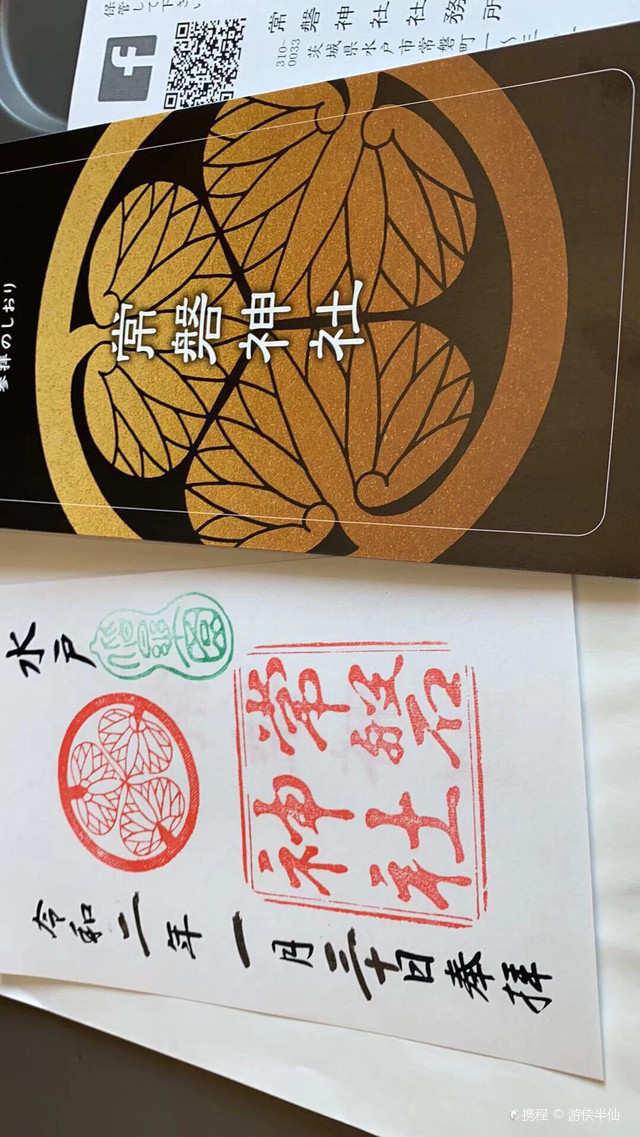 保管して下さい
常磐神社社務所
310-
0033
茨城県水戸市常磐町一
参拝のしおり
常磐神社
水戸
常磐
神社
令和二年一月三十日奉拝
携程 © 游侠半仙